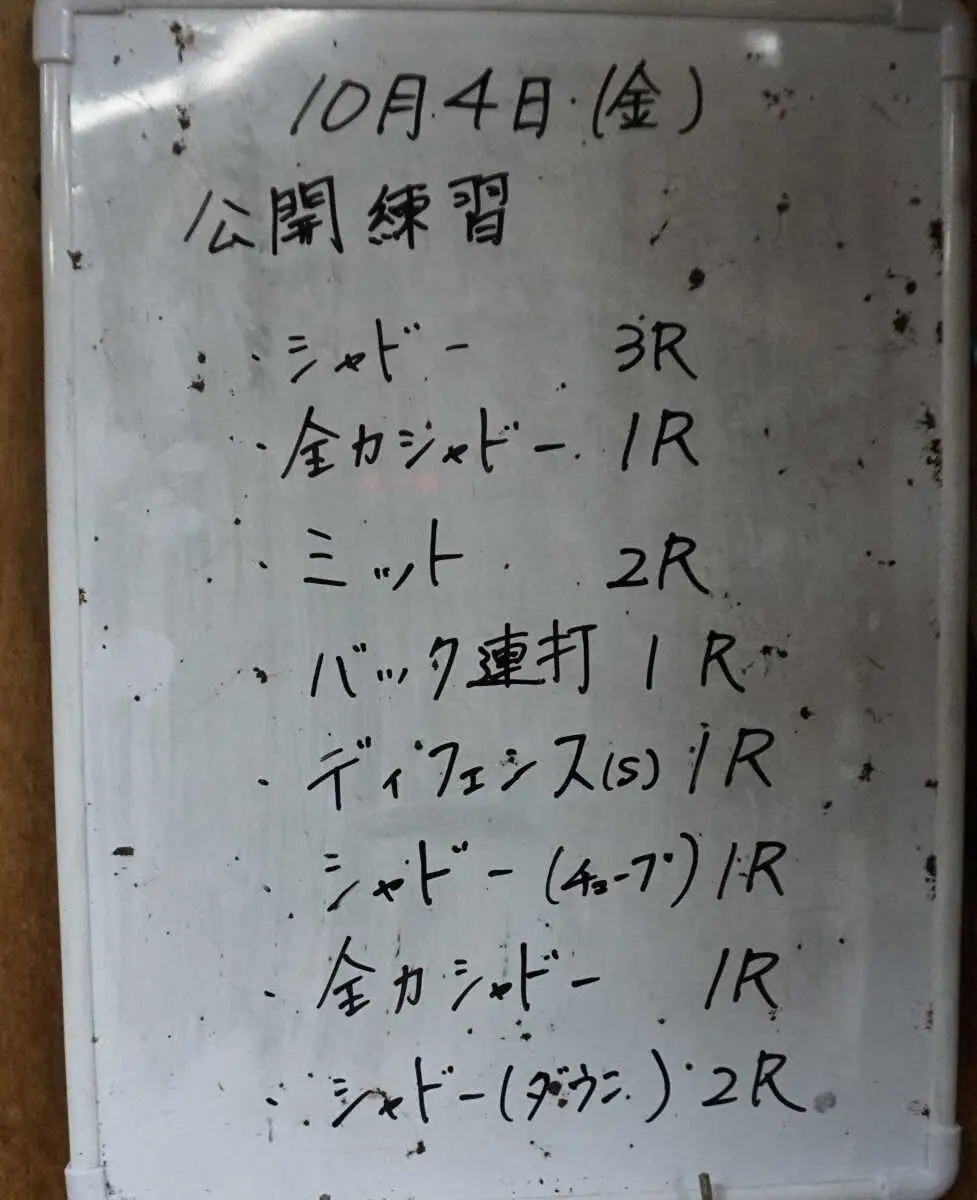 10月4日(金)
公開練習
・シャドー 3R
・全力シャドー 1R
・ミット 2R
・バック連打 1R
・ディフェンス(S) 1R
シャドー(チューブ) 1R
・全力シャドー 1R
・シャドー(ダウン) 2R